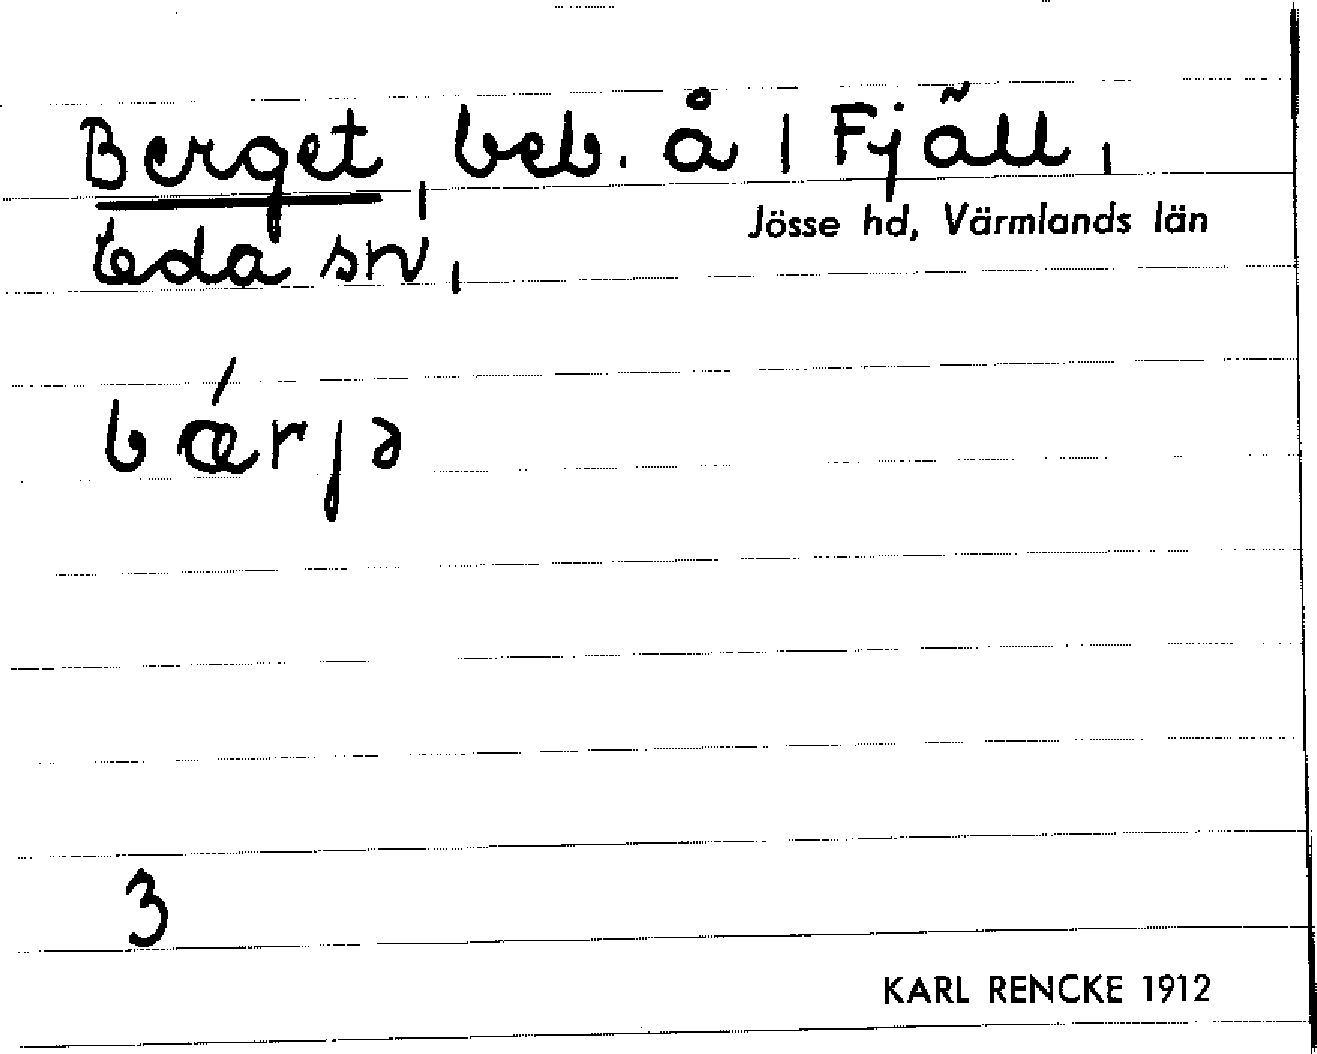 Berget, beb. å 1 Fjäll,
Jösse hd, Värmlands län
Eda sn,
bǽrjə
3
KARL RENCKE 1912